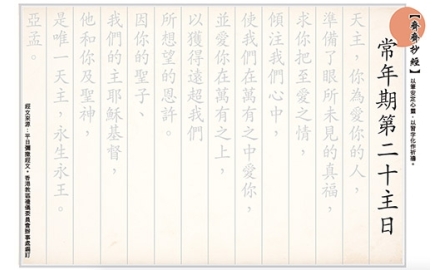 【齊齊抄經】
以筆安定心靈，以習字化作祈禱。
常年期第二十主日
天主，你為愛你的人，
準備了眼所未見的真福，
求你把至愛之情，
傾注我們心中，
使我們在萬有之中愛你，
並愛你在萬有之上，
以獲得遠超我們
所想望的恩許。
因你的聖子、
我們的主耶穌基督，
他和你及聖神，
是唯一天主，永生永王。
亞孟。
經文來源：平日彌撒經文。香港教區禮儀委員會辦事處編訂